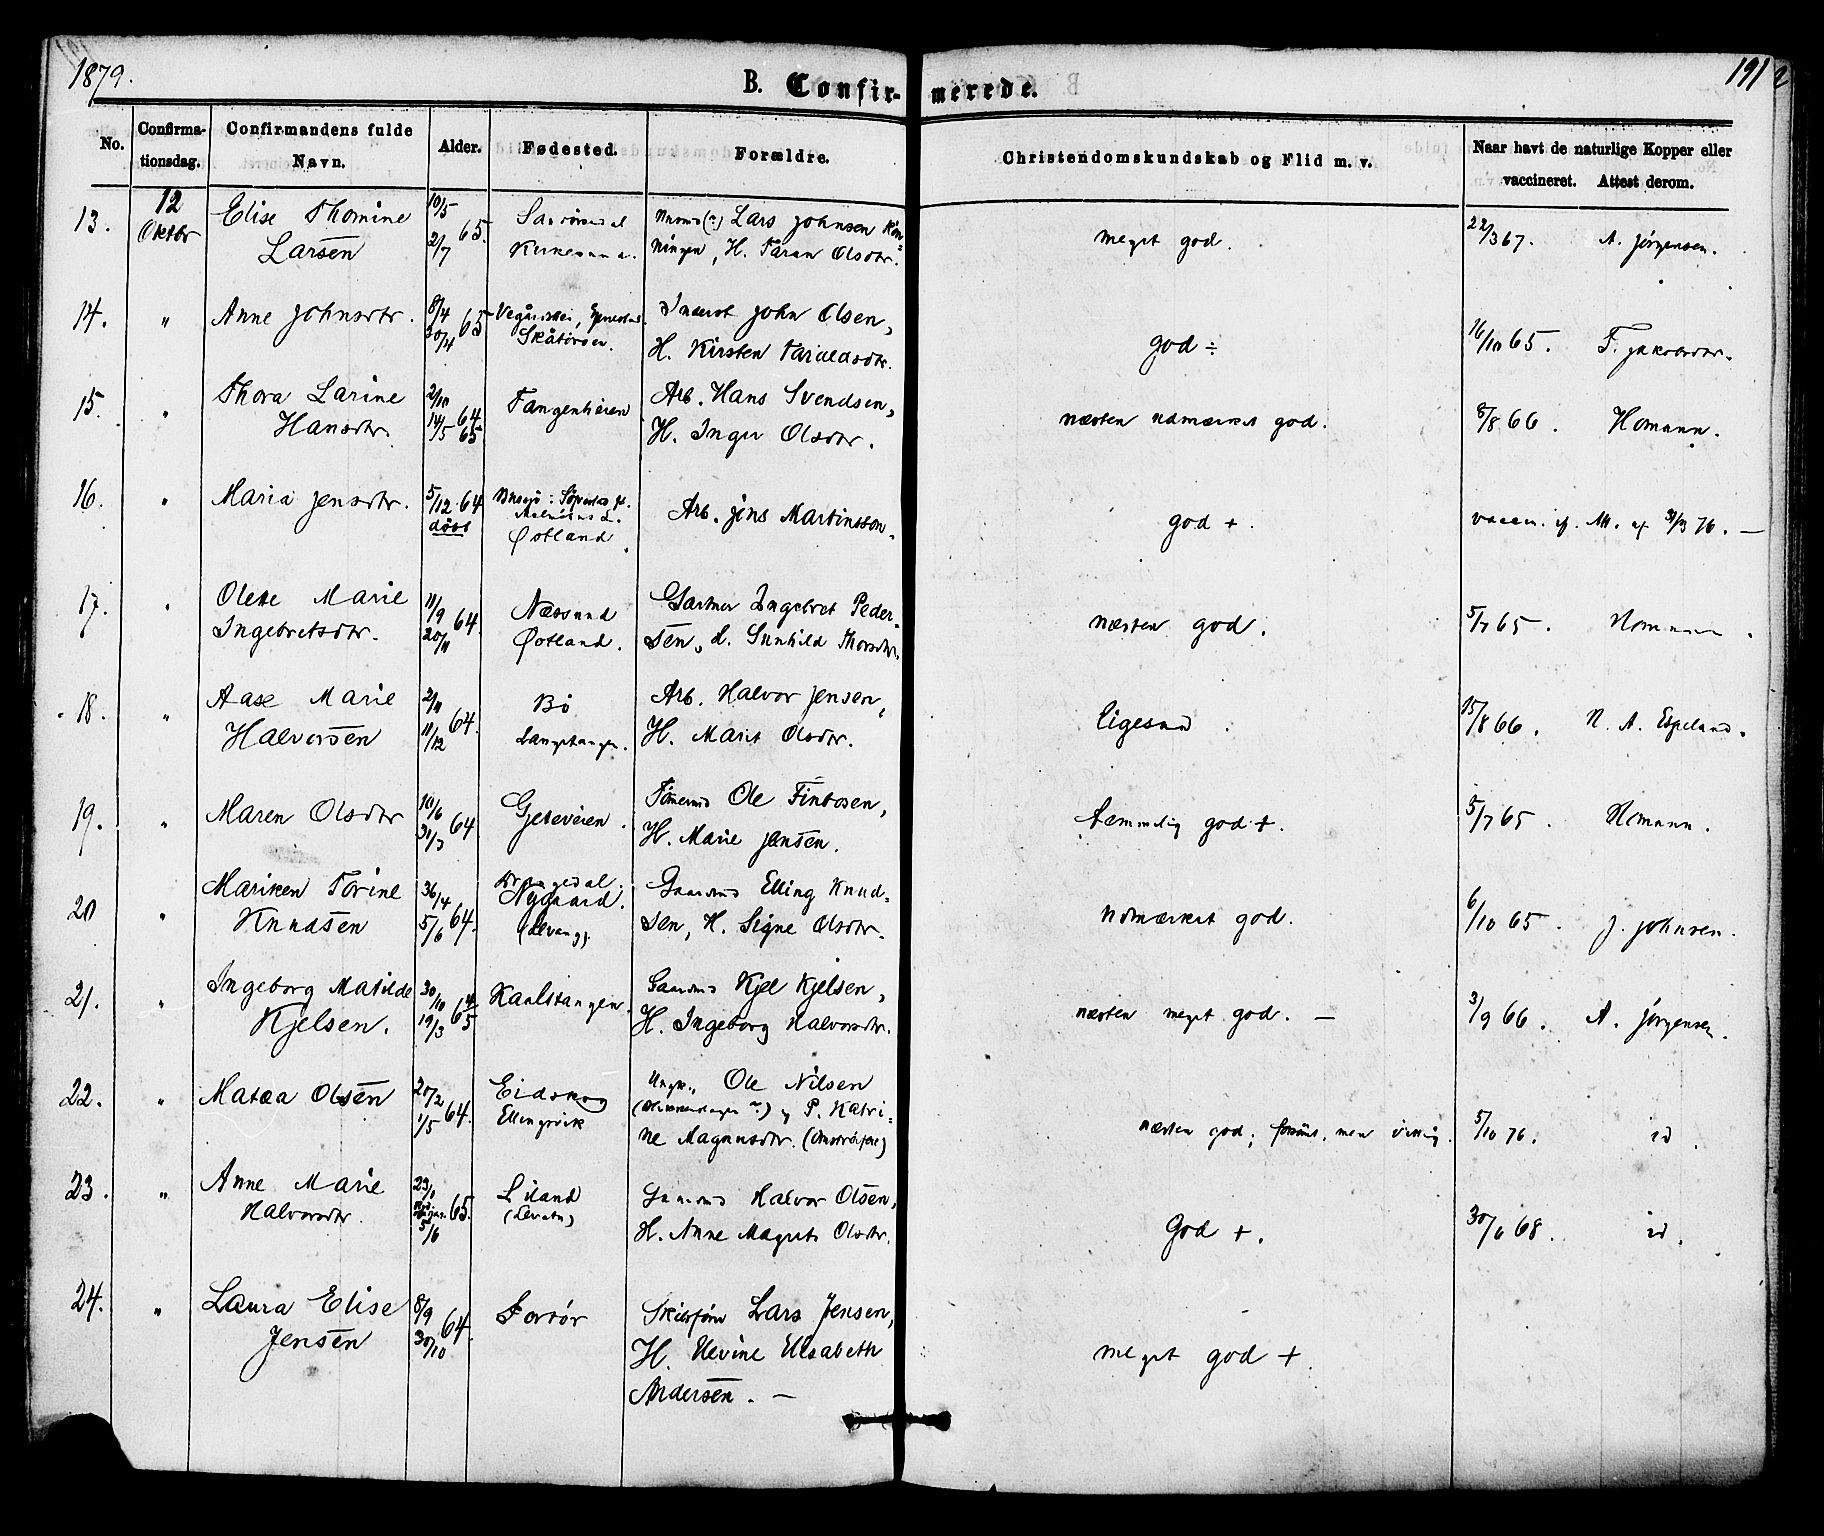 1879.
B. Confir- merede.
191
No.
Confirma-
tionsdag.
Confirmandens fulde
Navn.
Alder.
Fødested.
Forældre.
Christendomskundskab og Flid m. v.
Naar havt de naturlige Kopper eller
vaccineret. Attest derom.
13. 12 Oktbr
Elise Thomine
Larsen
10/5 65.
2/7
Lars Johnsen
H. Taran Olsdtr.
meget god.
22/3 67. A. Jørgensen.
14. "
Anne Johnsdtr.
8/4 65
30/4
John Olsen,
H. Kirsten Taraldsdtr.
god ÷
16/10 65. F.
15. "
Thora Larine
Hansdtr.
2/10 64
14/5 65
Tangenheien
Arb. Hans Svendsen,
H. Inger Olsdtr.
næsten udmærket god.
8/8 66. Homann.
16. "
Maria Jensdtr.
5/12 64
døbt
Østland
Arb. Jens Martinsson.
god +.
vaccin. if. Att. af 31/3 76. —
17. "
Olette Marie
Ingebretsdtr.
11/9 64.
20/11
Næssund
Østland.
Gartner Ingebret Peder-
sen, H. Gunhild Thorsdtr.
næsten god.
5/7 65. Homann.
18. "
Aase Marie
Halvorsen
2/11 64.
11/12
Bø
Langetangen.
Arb. Halvor Jensen,
H. Marit Olsdtr.
ligesaa.
15/8 66. N. A. Espeland.
19. "
Maren Olsdtr
10/6 64
31/7
Gjeteveien.
Tømmermd Ole Finbosen,
H. Marie Jensen.
temmelig god +.
5/7 65. Homann.
20 "
Mariken Torine
Knudsen
5/6 64.
Drangedal.
Nygaard.
(Levang).
Gaardmd Elling Knud-
sen, H. Signe Olsdtr.
udmærket god.
6/10 65. J. Johnsen.
21. "
Ingeborg Matilde
Kjelsen.
30/10 64
19/3 65
Karlstangen.
Gaardmd Kjel Kjelsen,
H. Ingeborg Halvorsdtr.
næsten meget god. —
3/9 66. A. Jørgensen.
22. "
Matea Olsen
20/2 64.
1/5
Eidskog
Ellingsvik
Ungk., Ole Nilsen
og P. Katri-
ne Magnusdtr.
næsten god; forsømt, men villig.
5/10 76. id.
23. "
Anne Marie
Halvorsdtr.
23/1 65.
5/6
Liland
Gaardmd Halvor Olsen,
H. Anne Magrete Olsdtr.
God +.
30/6 68. id.
24. "
Laura Elise
Jensen
8/9 64.
30/10
Portør
Skibsfører Lars Jensen,
H. Nevine Elisabeth
Andersen. —
meget god +.